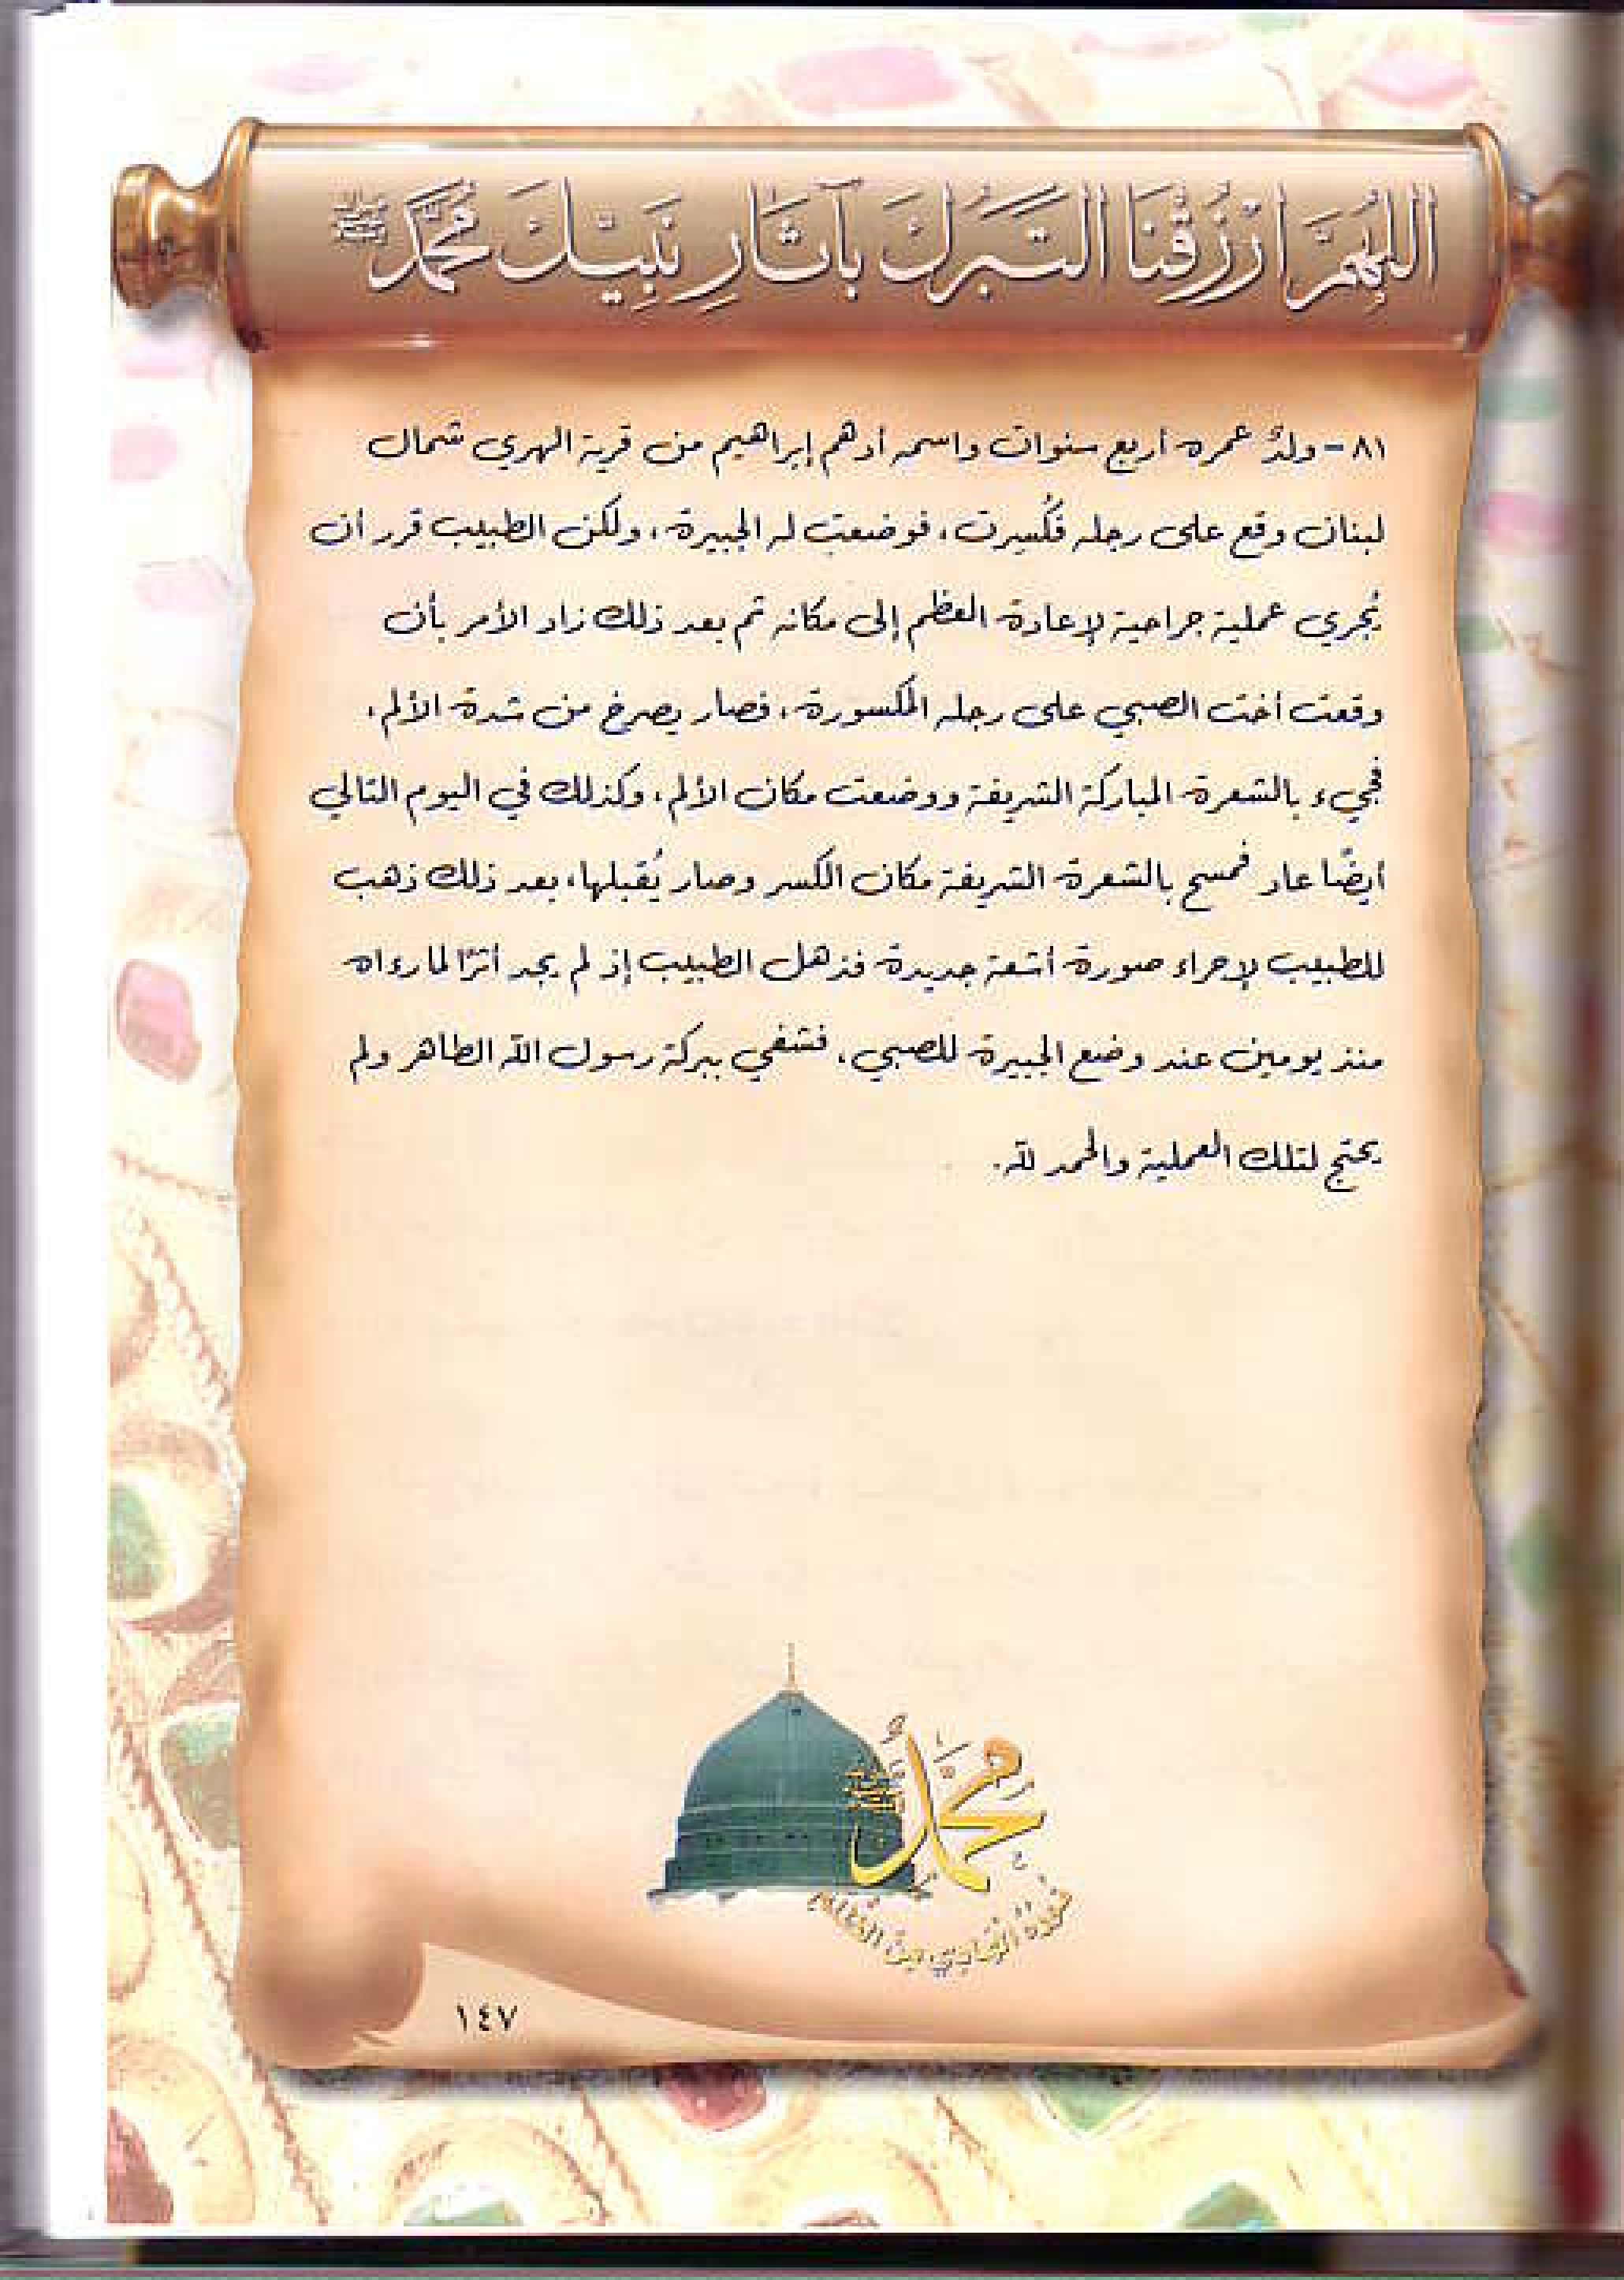 اللهُمَّ ارْزُقْنَا التَّبَرُّكَ بآثَارِ نَبِيِّكَ مُحَمَّدٍ ﷺ
٨١ - ولدٌ عمره أربع سنوات واسمه أدهم إبراهيم من قرية الهري شمال
لبنان وقع على رجله فكُسِرت، فوضعت له الجبيرة، ولكن الطبيب قرر أن
يُجري عملية جراحية لإعادة العظم إلى مكانه ثم بعد ذلك زاد الأمر بأن
وقعت أخت الصبي على رجله المكسورة، فصار يصرخ من شدة الألم،
فجيء بالشعرة المباركة الشريفة ووضعت مكان الألم، وكذلك في اليوم التالي
أيضًا عاد فمسح بالشعرة الشريفة مكان الكسر وصار يُقبلها، بعد ذلك ذهب
للطبيب لإجراء صورة أشعة جديدة فذهل الطبيب إذ لم يجد أثرًا لما رءاه
منذ يومين عند وضع الجبيرة للصبي، فشفي ببركة رسول الله الطاهر ولم
يحتج لتلك العملية والحمد لله.
مُحَمَّدٌ ﷺ
١٤٧